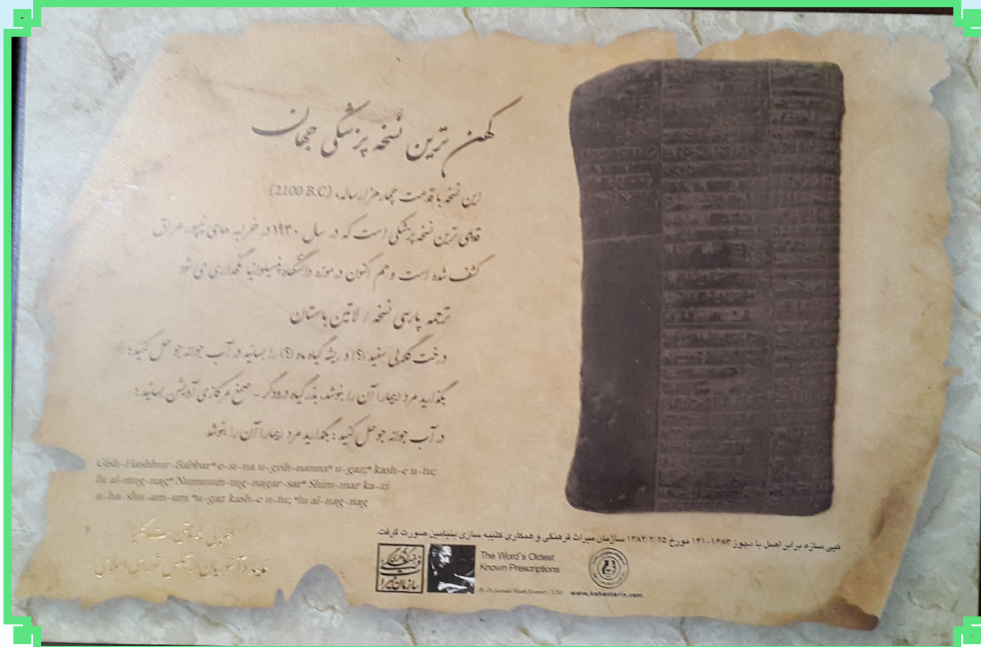 کهن ترین نسخه پزشکی جهان
این نسخه با قدمت چهار هزار ساله، (2100 B.C)
قدیمی ترین نسخه پزشکی است که در سال ۱۹۳۰ در خرابه های نیپور عراق
کشف شده است و هم اکنون در موزه دانشگاه پنسیلوانیا نگهداری می شود
ترجمه پارسی نسخه از لاتین باستان
درخت گلابی سفید (؟) و ریشه گیاه ماه (؟) را بسائید در آب جوانه جو حل کنید؛
بگذارید مرد (بیمار) آن را بنوشد. بذر گیاه درودگر - صمغ مرکازی آویشن بسائید؛
در آب جوانه جو حل کنید؛ بگذارید مرد (بیمار) آن را بنوشد
Gish-Hashhur-Babbar* e-si-na u-gish-nanna* u-gaz;* kash-e u-tu;
lu al-nag-nag* Numnum-ug-nagar-sar* Shim-mar ka-zi
u-ha-shu-am-um *u-gaz kash-e u-tu; *lu al-nag-nag
کپی سازه برابر اصل با مجوز ۱۶۸۳-۱۳۱ مورخ ۱۳۸۴/۲/۲۵ سازمان میراث فرهنگی و همکاری کتیبه سازی بنیامین صورت گرفت.
The Word's Oldest
Known Prescriptions
www.kohantarin.com